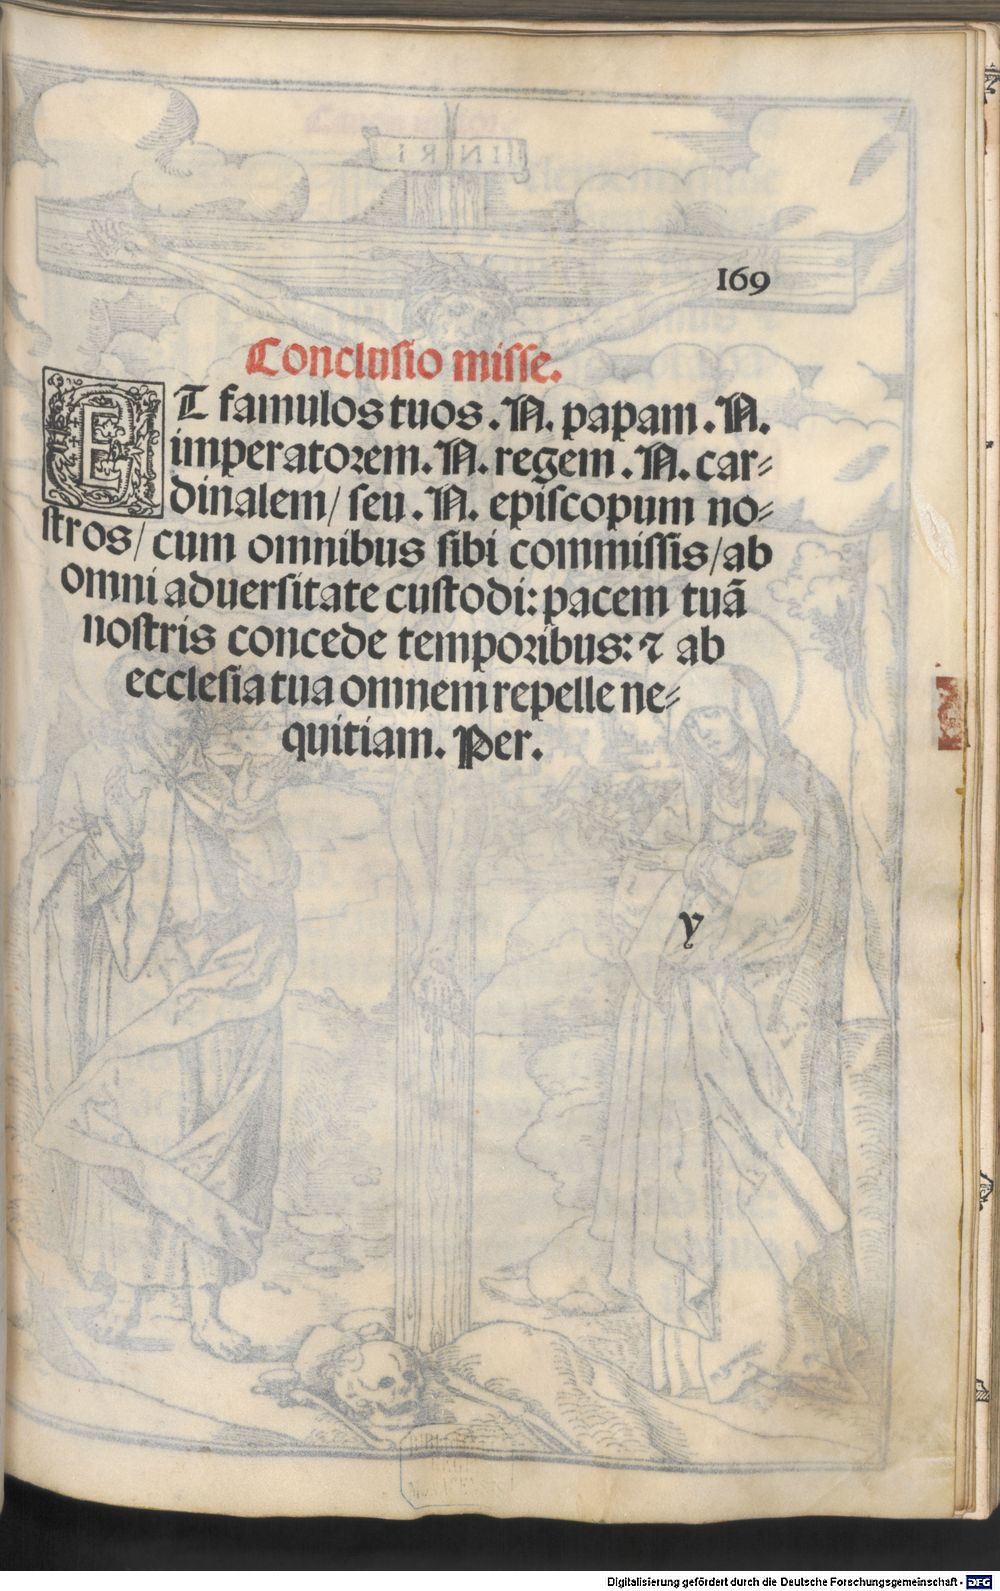 169
Conclusio misse.
ET famulos tuos. N. papam. N.
imperatorem. N. regem. N. car-
dinalem/ seu. N. episcopum no-
stros/ cum omnibus sibi commissis/ ab
omni aduersitate custodi: pacem tuā
nostris concede temporibus: ⁊ ab
ecclesia tua omnem repelle ne-
quitiam. Per.
y
Digitalisierung gefördert durch die Deutsche Forschungsgemeinschaft - DFG